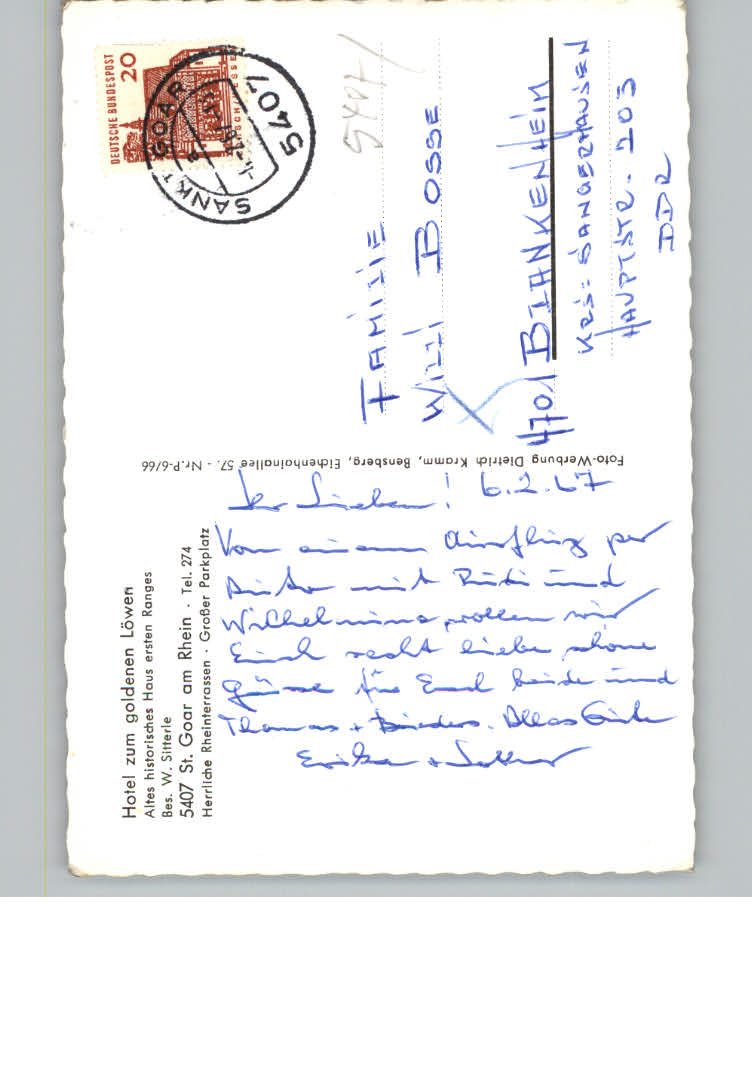 Hotel zum goldenen Löwen
Altes historisches Haus ersten Ranges
Bes. W. Sitterle
5407 St. Goar am Rhein · Tel. 274
Herrliche Rheinterrassen · Großer Parkplatz
Ihr Lieben! 6.2.67
Von einem Ausflug per
Auto mit Rudi und
Wilhelmine wollen wir
Euch recht liebe schöne
Grüsse für Euch beide und
Thomas + Alles Gute
Erika + Lothar
Foto-Werbung Dietrich Kramm, Bensberg, Eichenhainallee 57. - Nr. P-6/66
DEUTSCHE BUNDESPOST
20
SANKT GOAR
5407
5407
FAMILIE
WILLI BOSSE
4701 BLANKENHEIM
KRS: SANGERHAUSEN
HAUPTSTR. 203
DDR